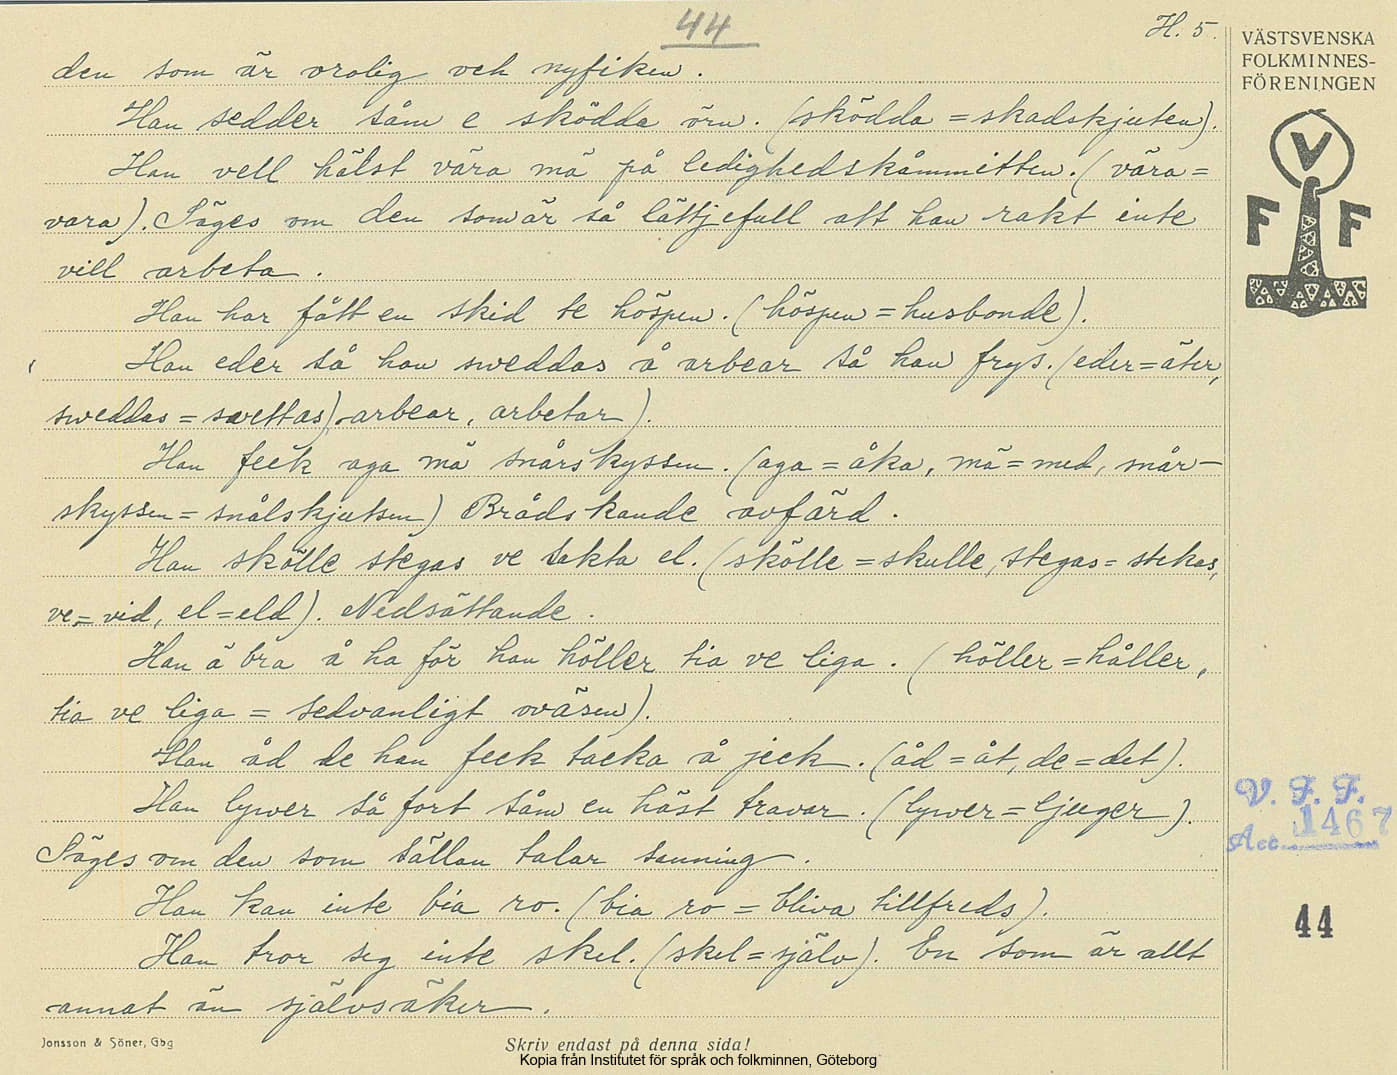 44
H. 5.
VÄSTSVENSKA
FOLKMINNES-
FÖRENINGEN
V
F F
den som är orolig och nyfiken.
Han sedder såm e sködda örn. (sködda = skadskjuten).
Han vell hälst vära mä på ledighedskåmmitten. (vära =
vara). Säges om den som är så lättjefull att han rakt inte
vill arbeta.
Han har fått en skid te höspen. (höspen = husbonde).
Han eder så han sweddas å arbear så han frys. (eder = äter,
sweddas = svettas), arbear, arbetar).
Han feck aga mä snårskyssen. (aga = åka, mä = med, snår-
skyssen = snålskjutsen) Brådskande avfärd.
Han skölle stegas ve sakta el. (skölle = skulle, stegas = stekas,
ve = vid, el = eld). Nedsättande.
Han ä bra å ha för han höller tia ve liga. (höller = håller,
tia ve liga = sedvanligt oväsen).
Han åd de han feck tacka å jeck. (åd = åt, de = det).
Han lywer så fort såm en häst travar. (lywer = ljuger).
Säges om den som sällan talar sanning.
Han kan inte bia ro. (bia ro = bliva tillfreds).
Han tror seg inte skel. (skel = själv). En som är allt
annat än självsäker.
V. F. F.
Acc. 1467
44
Jonsson & Söner, Gbg
Skriv endast på denna sida!
Kopia från Institutet för språk och folkminnen, Göteborg